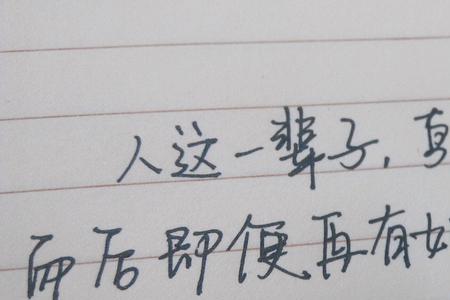 人这一辈子,真
而后即便再有